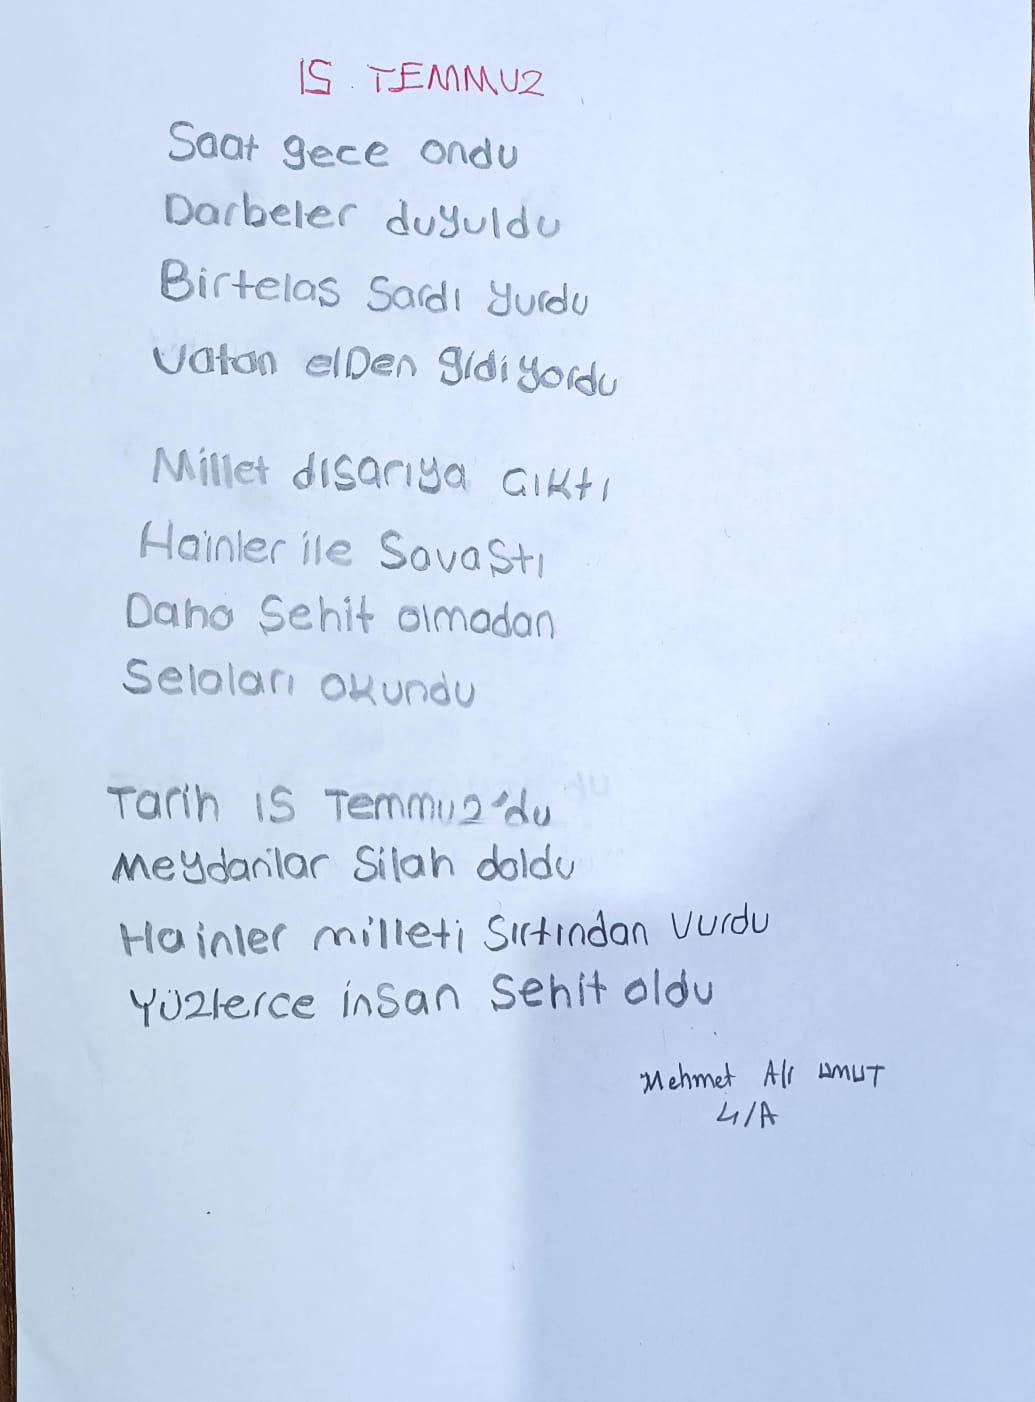 15 TEMMUZ
Saat gece ondu
Darbeler duyuldu
Birtelas Sardı yurdu
Vatan elDen gidiyordu
Millet dısarıya Gıktı
Hainler ile SavaStı
Daha Sehit olmadan
Selaları okundu
Tarih 15 Temmuz'du
Meydanlar Silah doldu
Hainler milleti Sırtından vurdu
Yüzlerce inSan Sehit oldu
Mehmet Ali UMUT
4/A